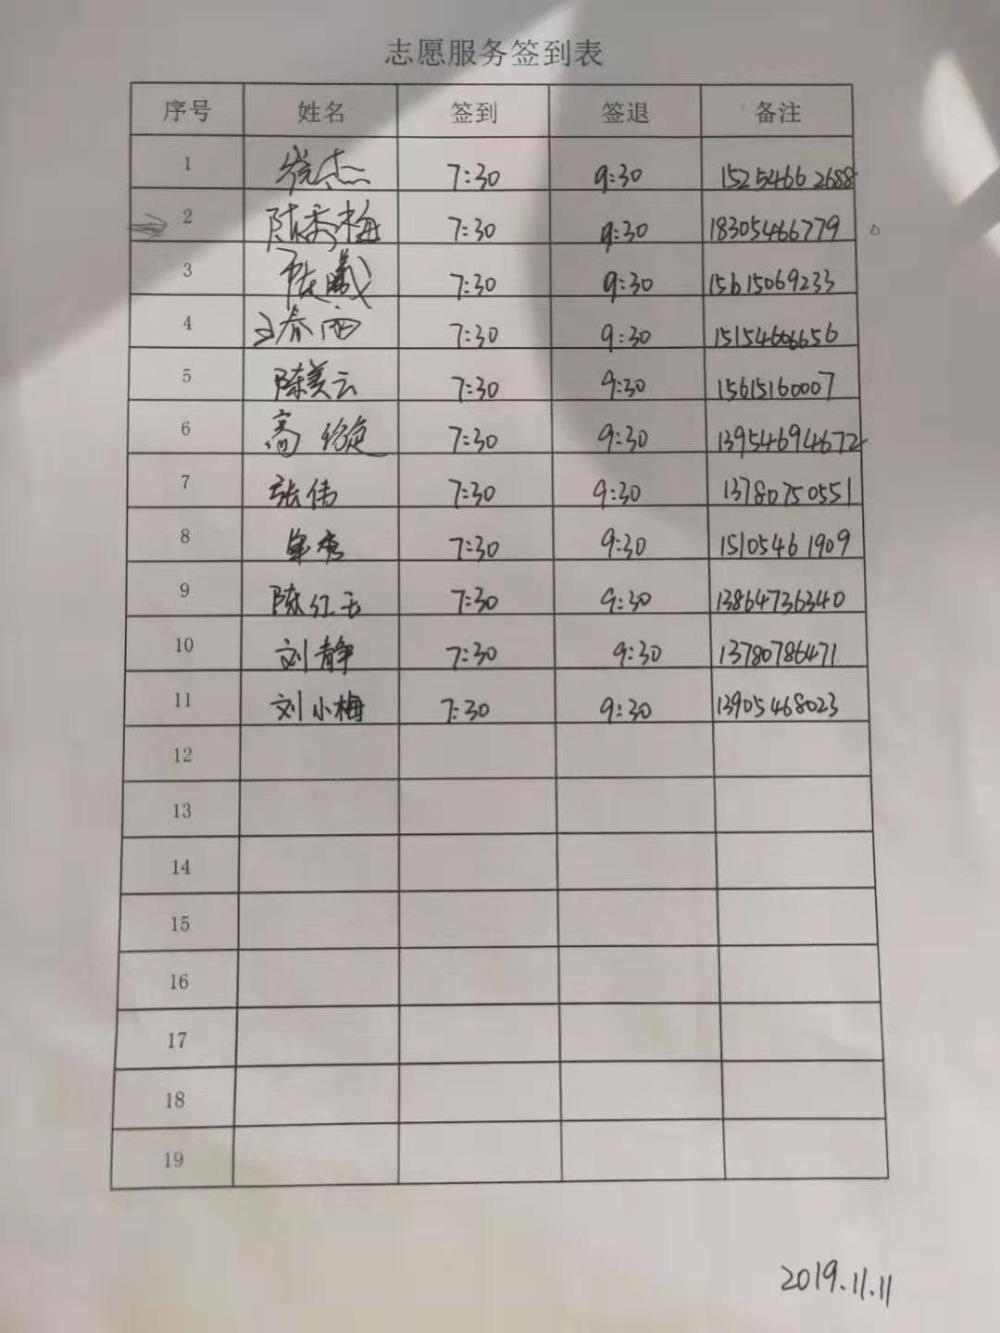 志愿服务签到表
序号 姓名 签到 签退 备注
1 7:30 9:30 15254662688
2 陈秀梅 7:30 9:30 18305466779
3 7:30 9:30 15615069233
4 王春雨 7:30 9:30 15154606656
5 陈美云 7:30 9:30 15615160007
6 高 7:30 9:30 13954694672
7 张伟 7:30 9:30 13780750551
8 7:30 9:30 15105461909
9 陈红玉 7:30 9:30 13864736340
10 刘静 7:30 9:30 13780786471
11 刘小梅 7:30 9:30 13905468023
12
13
14
15
16
17
18
19
2019.11.11